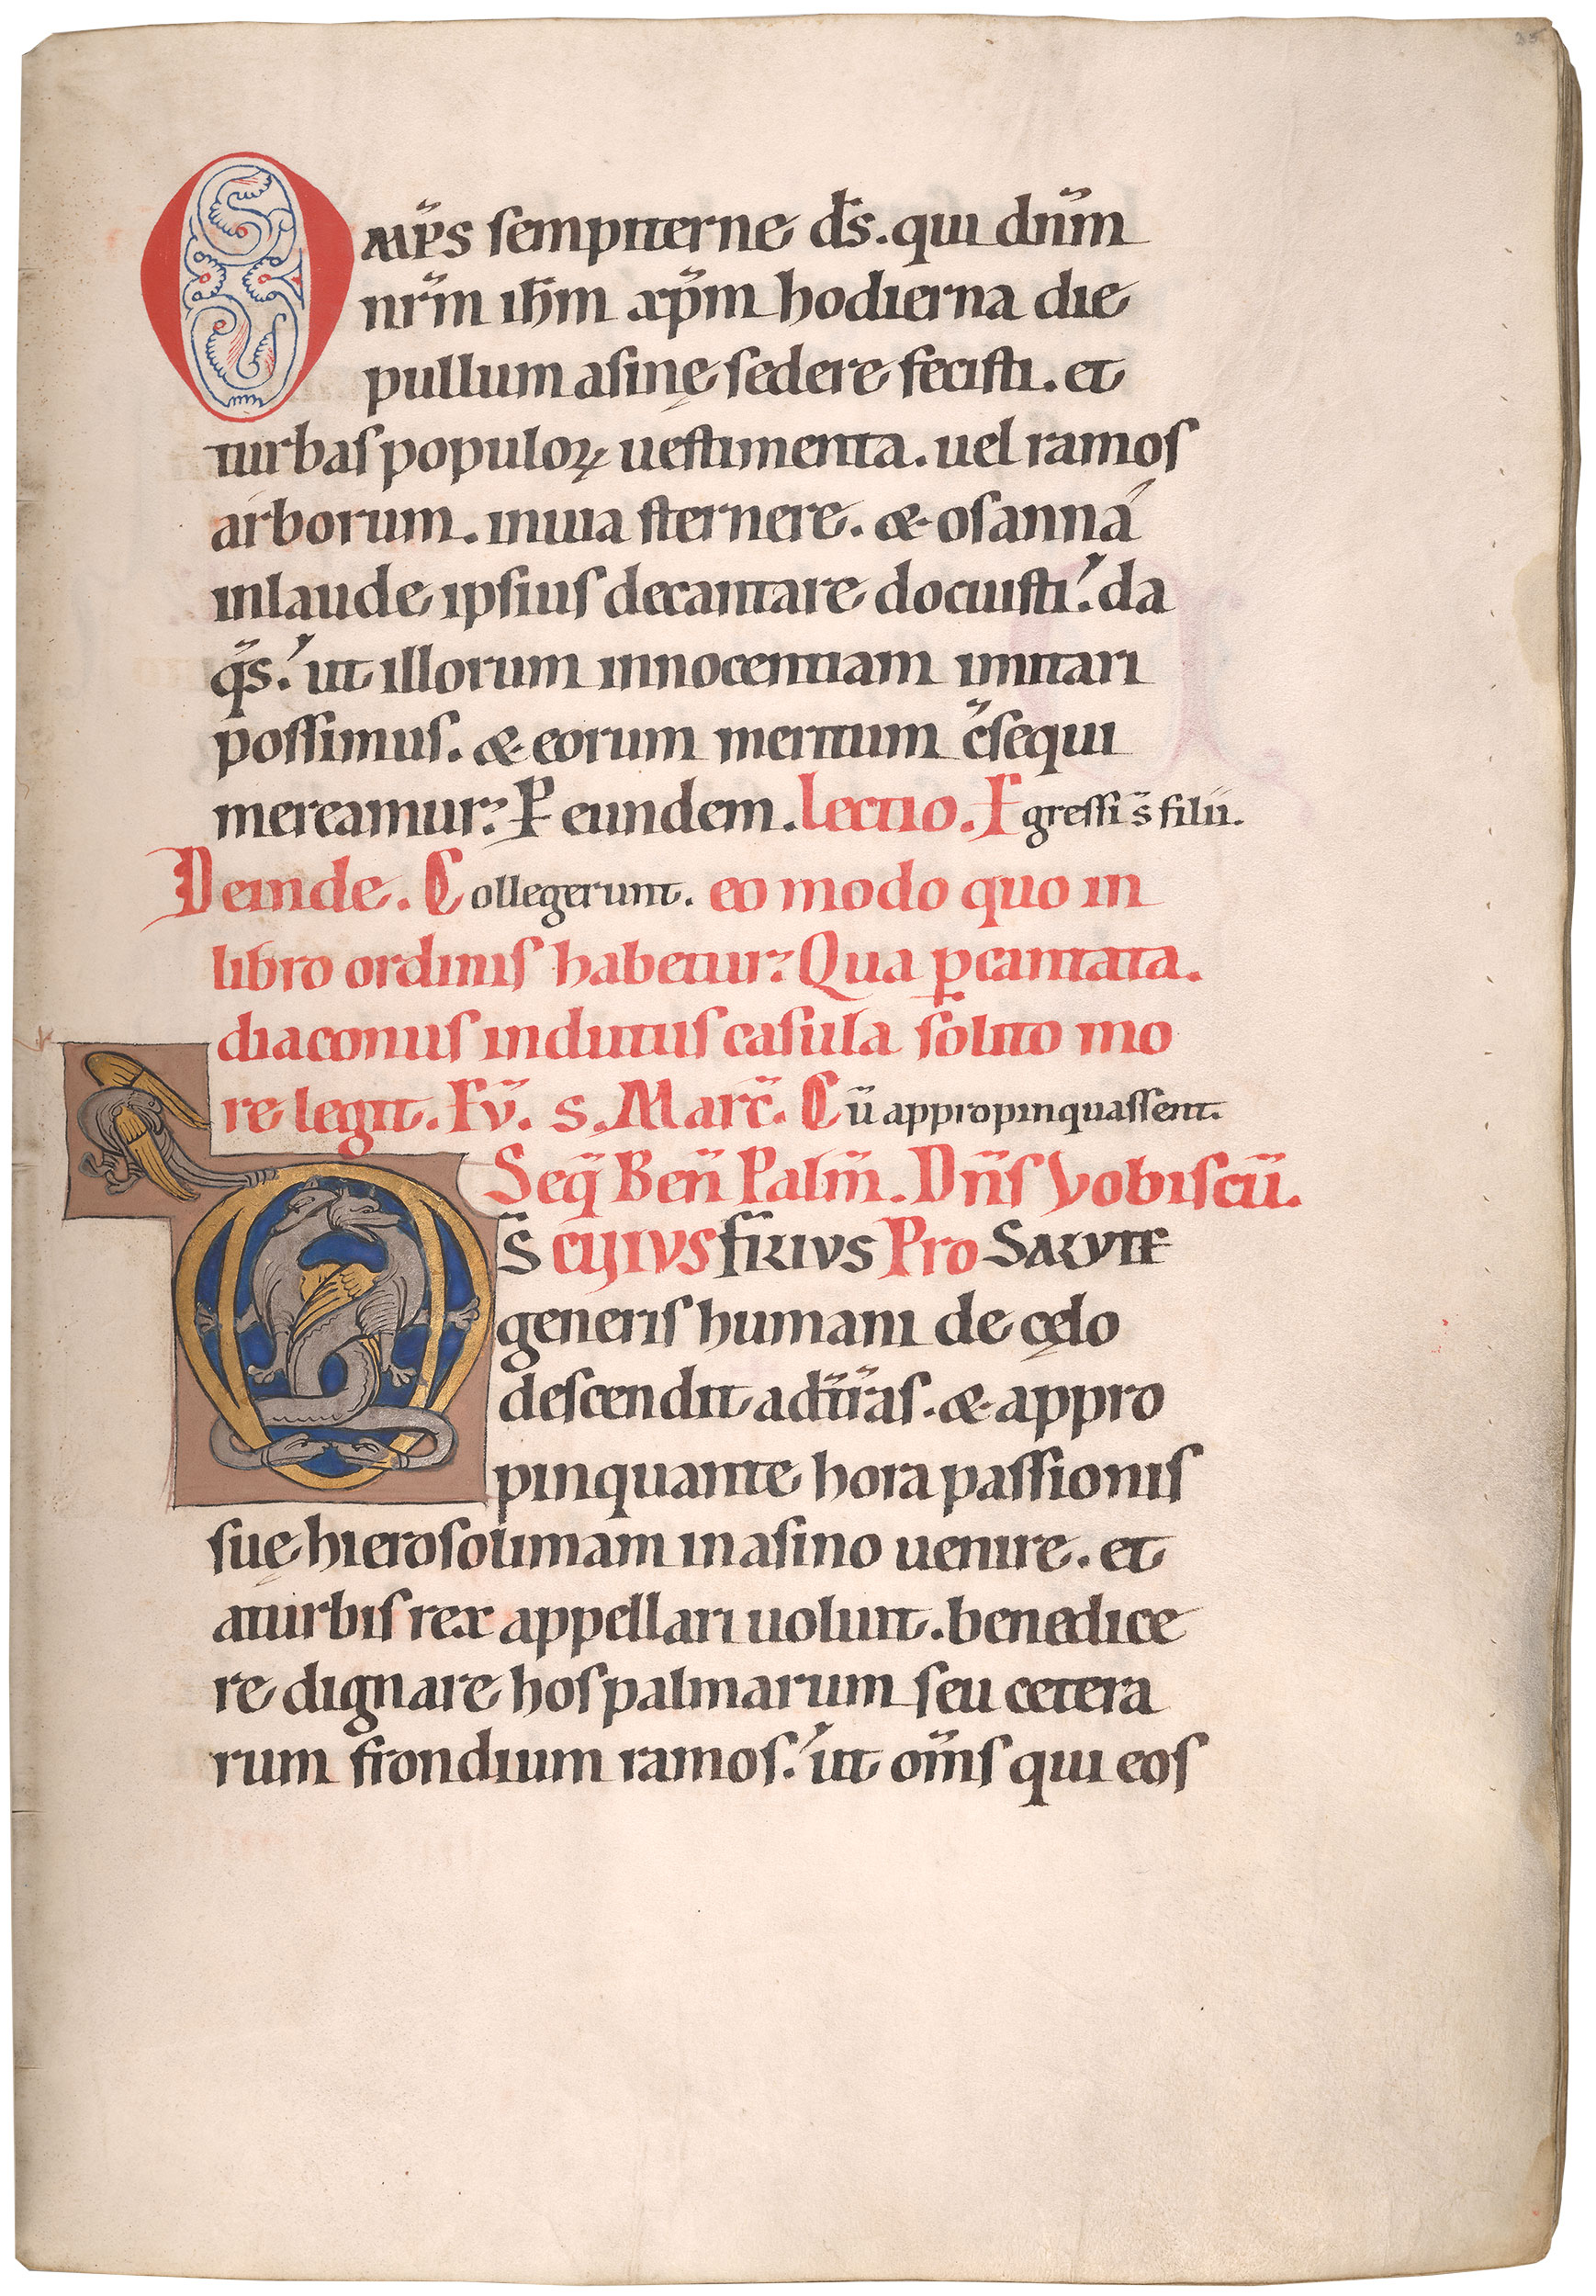 35
Omp̄s sempiterne d̄s. qui dn̄m
nr̄m ih̄m xp̄m hodierna die
pullum asinę sedere fecisti. et
turbas populoꝝ uestimenta. uel ramos
arborum. inuia sternere. & osanná
inlaude ipsius decantare docuisti. da
q̄s. ut illorum innocentiam imitari
possimus. & eorum meritum c̄sequi
mereamur. P̄ eundem. Lectio. Egressi s̄ filii.
Deinde. Collegerunt. eo modo quo in
libro ordinis habetur. Qua ꝑcantata.
diaconus indutus casula solito mo
re legit. Ev̄. s. Marc̄. Cū appropinquassent.
Seq̄ Ben̄ Palm̄. Dn̄s Vobiscū.
Ds̄ CUIUS FILIUS PRO SALUTE
generis humani de cęlo
descendit adtr̄as. & appro
pinquante hora passionis
suę hierosolimam inasino uenire. et
aturbis rex appellari uoluit. benedice
re dignare hos palmarum seu cetera
rum frondium ramos. ut om̄s qui eos